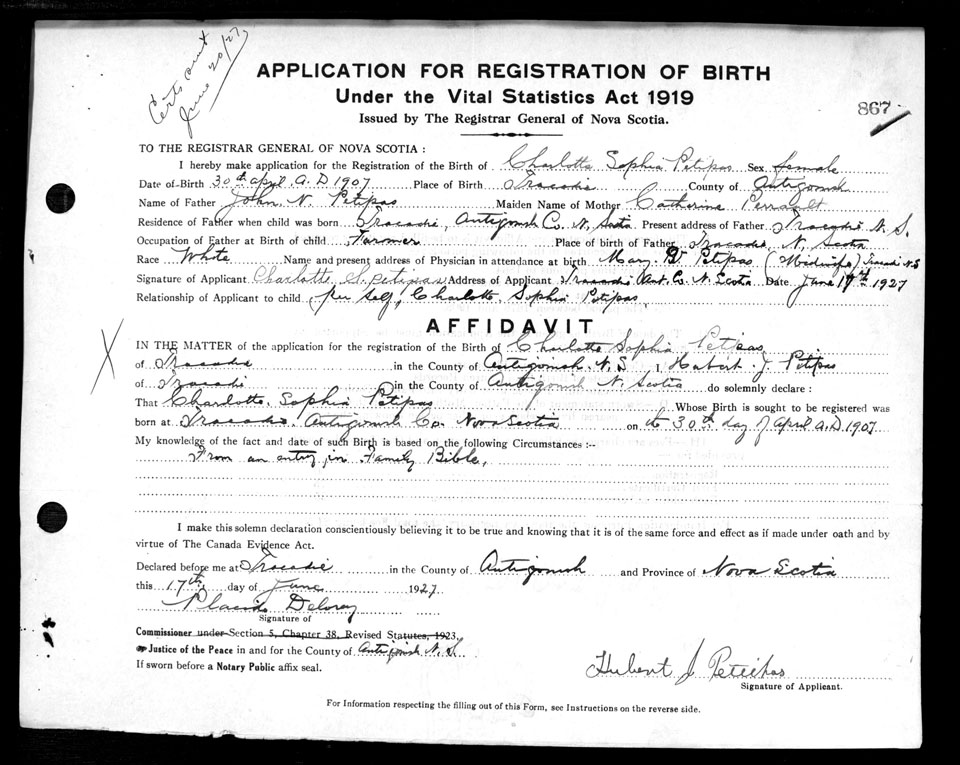 Certs sent
June 20/27
APPLICATION FOR REGISTRATION OF BIRTH
Under the Vital Statistics Act 1919
Issued by The Registrar General of Nova Scotia.
867
TO THE REGISTRAR GENERAL OF NOVA SCOTIA :
I hereby make application for the Registration of the Birth of Charlotte Sophia Petipas Sex female
Date of Birth 30th April A.D 1907 Place of Birth Tracadie County of Antigonish
Name of Father John N. Petipas Maiden Name of Mother Catherine Perrault
Residence of Father when child was born Tracadie, Antigonish Co. N. Scotia Present address of Father Tracadie N. S.
Occupation of Father at Birth of child Farmer Place of birth of Father Tracadie, N. Scotia
Race White Name and present address of Physician in attendance at birth Mary Petipas (Midwife) Tracadie N.S
Signature of Applicant Charlotte S. Petipas Address of Applicant Tracadie Ant. Co. N. Scotia Date June 17th 1927
Relationship of Applicant to child per self, Charlotte Sophia Petipas
AFFIDAVIT
X
IN THE MATTER of the application for the registration of the Birth of Charlotte Sophia Petipas
of Tracadie in the County of Antigonish. N. S I Hubert J. Petipas
of Tracadie in the County of Antigonish N. Scotia do solemnly declare :
That Charlotte Sophia Petipas Whose Birth is sought to be registered was
born at Tracadie Antigonish Co. Nova Scotia on the 30th day of April A.D. 1907
My knowledge of the fact and date of such Birth is based on the following Circumstances :--
From an entry in Family Bible,
I make this solemn declaration conscientiously believing it to be true and knowing that it is of the same force and effect as if made under oath and by
virtue of The Canada Evidence Act.
Declared before me at Tracadie in the County of Antigonish and Province of Nova Scotia
this 17th day of June 1927
Placide Delorey
Signature of
Commissioner under Section 5, Chapter 38, Revised Statutes, 1923,
or Justice of the Peace in and for the County of Antigonish N. S.
If sworn before a Notary Public affix seal.
Hubert J Petipas
Signature of Applicant.
For Information respecting the filling out of this Form, see Instructions on the reverse side.